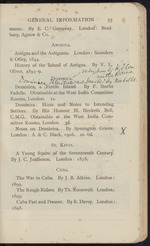 GENERAL INFORMATION 55
nicana. By E. C. Gaceway. London: Brad-
bury, Agnew & Co.
ANTIGUA.
Antigua and the Antiguans. London: Saunders
& Otley, 1844.
History of the Island of Antigua. By V. L.
Oliver, 1894-9.
DOMINICA.
Dominica, a Fertile Island. By F. Sterns
Fadelle. Obtainable at the West India Committee
Rooms, London.
Dominica: Hints and Notes to Intending
Settlers. By His Honour H. Hesketh Bell,
C.M.G. Obtainable at the West India Com-
mittee Rooms, London.
Notes on Dominica. By Symington Grieve.
London: A. & C. Black, 1906.
ST. KITTS.
A Young Squire of the Seventeenth Century.
By J. C. Jeaffreson. London: 1878.
CUBA.
The War in Cuba. By J. B. Atkins. London:
1899.
The Rough Riders. By Th. Roosevelt. London:
1899.
Cuba Past and Present. By R. Davey. London:
1898.